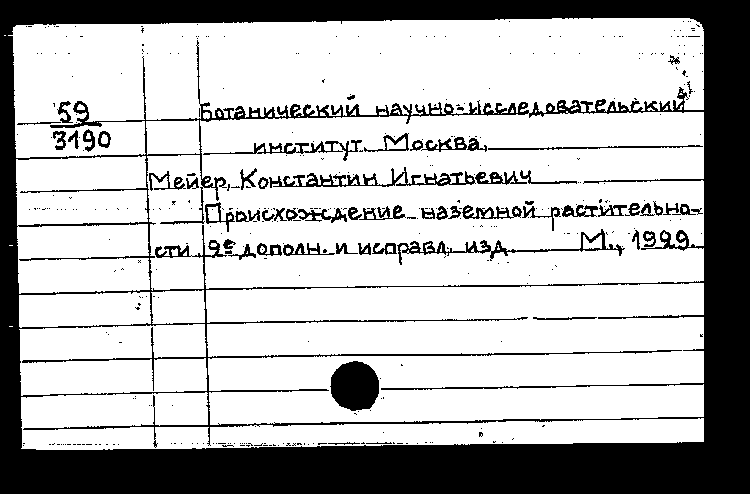 59
3190
Ботанический научно-исследовательский
институт. Москва.
Мейер, Константин Игнатьевич
Происхождение наземной растительно-
сти. 2е дополн. и исправл. изд. М., 1929.